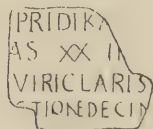 PRIDIKA
AS XX II
VIRICLARIS
CTIONEDECIM